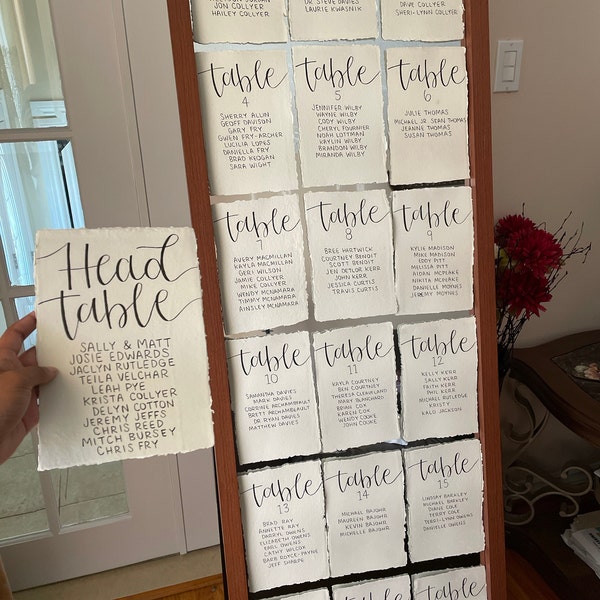 JON COLLYER
HAILEY COLLYER
DR STEVE DAVIES
LAURIE KWASNIK
DAVE COLLYER
SHERI-LYNN COLLYER
table
4
SHERRY ALLIN
GEOFF DAVISON
GARY FRY
GWEN FRY-ARCHER
LUCILIA LOPES
DANIELLA FRY
BRAD KEOGAN
SARA WIGHT
table
5
JENNIFER WILBY
WAYNE WILBY
CODY WILBY
CHERYL FOURNIER
NOAH LOTTMAN
KAYLIN WILBY
BRANDON WILBY
MIRANDA WILBY
table
6
JULIE THOMAS
MICHAEL JR. SEAN THOMAS
JEANNE THOMAS
SUSAN THOMAS
Head
table
SALLY & MATT
JOSIE EDWARDS
JACLYN RUTLEDGE
TEILA VELCHAR
LEAH PYE
KRISTA COLLYER
DELYN COTTON
JEREMY JEFFS
CHRIS REED
MITCH BURSEY
CHRIS FRY
table
7
AVERY MACMILLAN
KAYLA MACMILLAN
GERI WILSON
JAMIE COLLYER
MIKE COLLYER
WENDY MCNAMARA
TIMMY MCNAMARA
AINSLEY MCNAMARA
table
8
BREE HARTWICK
COURTNEY BENOIT
SCOTT BENOIT
JEN DETLOR KERR
JOHN KERR
JESSICA CURTIS
TRAVIS CURTIS
table
9
KYLIE MADISON
MIKE MADISON
EDDY PITT
MELISSA PITT
AIDAN MCPEAKE
NIKITA MCPEAKE
DANIELLE MOYNES
JEREMY MOYNES
table
10
SAMANTHA DAVIES
MARK DAVIES
CORRINE ARCHAMBEAULT
BRETT ARCHAMBEAULT
DR RYAN DAVIES
MATTHEW DAVIES
table
11
KAYLA COURTNEY
BEN COURTNEY
THERESA CLEVELAND
MARY BLANCHARD
BRIAN COX
KAREN COX
WENDY COOKE
JOHN COOKE
table
12
KELLY KERR
SALLY KERR
FAITH KERR
PHIL KERR
MICHAEL RUTLEDGE
KRISTY
KALO JACKSON
table
13
BRAD RAY
ANNETTE RAY
DARRYL OWENS
ELIZABETH OWENS
EARL OWENS
CATHY WILCOX
BARB ROYCE-PAYNE
JEFF SHARPE
table
14
MICHAEL BAJOHR
MAUREEN BAJOHR
KEVIN BAJOHR
MICHELLE BAJOHR
table
15
LINDSAY BARKLEY
MICHAEL BARKLEY
DIANE COLE
TERRY COLE
TERRI-LYNN OWENS
DANIELLE OWENS
table
table
table